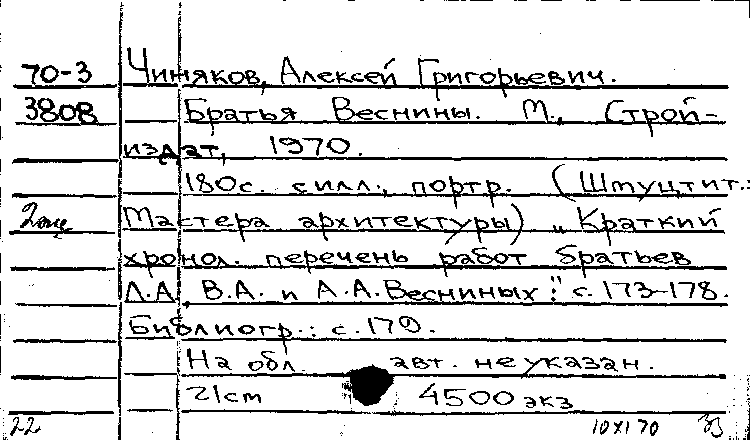 70-3 Чиняков, Алексей Григорьевич.
3808 Братья Веснины. М., Строй-
издат, 1970.
180с. с илл., портр. (Шмуцтит.:
2 экз Мастера архитектуры) „Краткий
хронол. перечень работ братьев
Л.А., В.А. и А.А. Весниных": с. 173-178.
Библиогр.: с. 179.
На обл. авт. не указан.
21cm 4500 экз
22 10X170